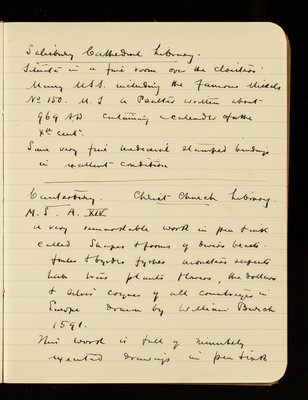 Salisbury Cathedral Library.
Situate in a fine room over the cloisters
Many MSS. including the famous
No 150. M.S. a Psalter written about
969 A.D. containing a calendar of the
Xth cent.
Some very fine mediaeval stamped bindings
in excellent condition.
Canterbury. Christ Church Library.
M.S. A. XIV
A very remarkable work in pen & ink
called Shapes & forms of divers beasts
foules & byrdes fyshes monsters serpents
trees plants flowers, the dollars
& silver coynes of all countreyes in
Europe drawn by William Burch
1591.
This work is full of minutely
executed drawings in pen & ink